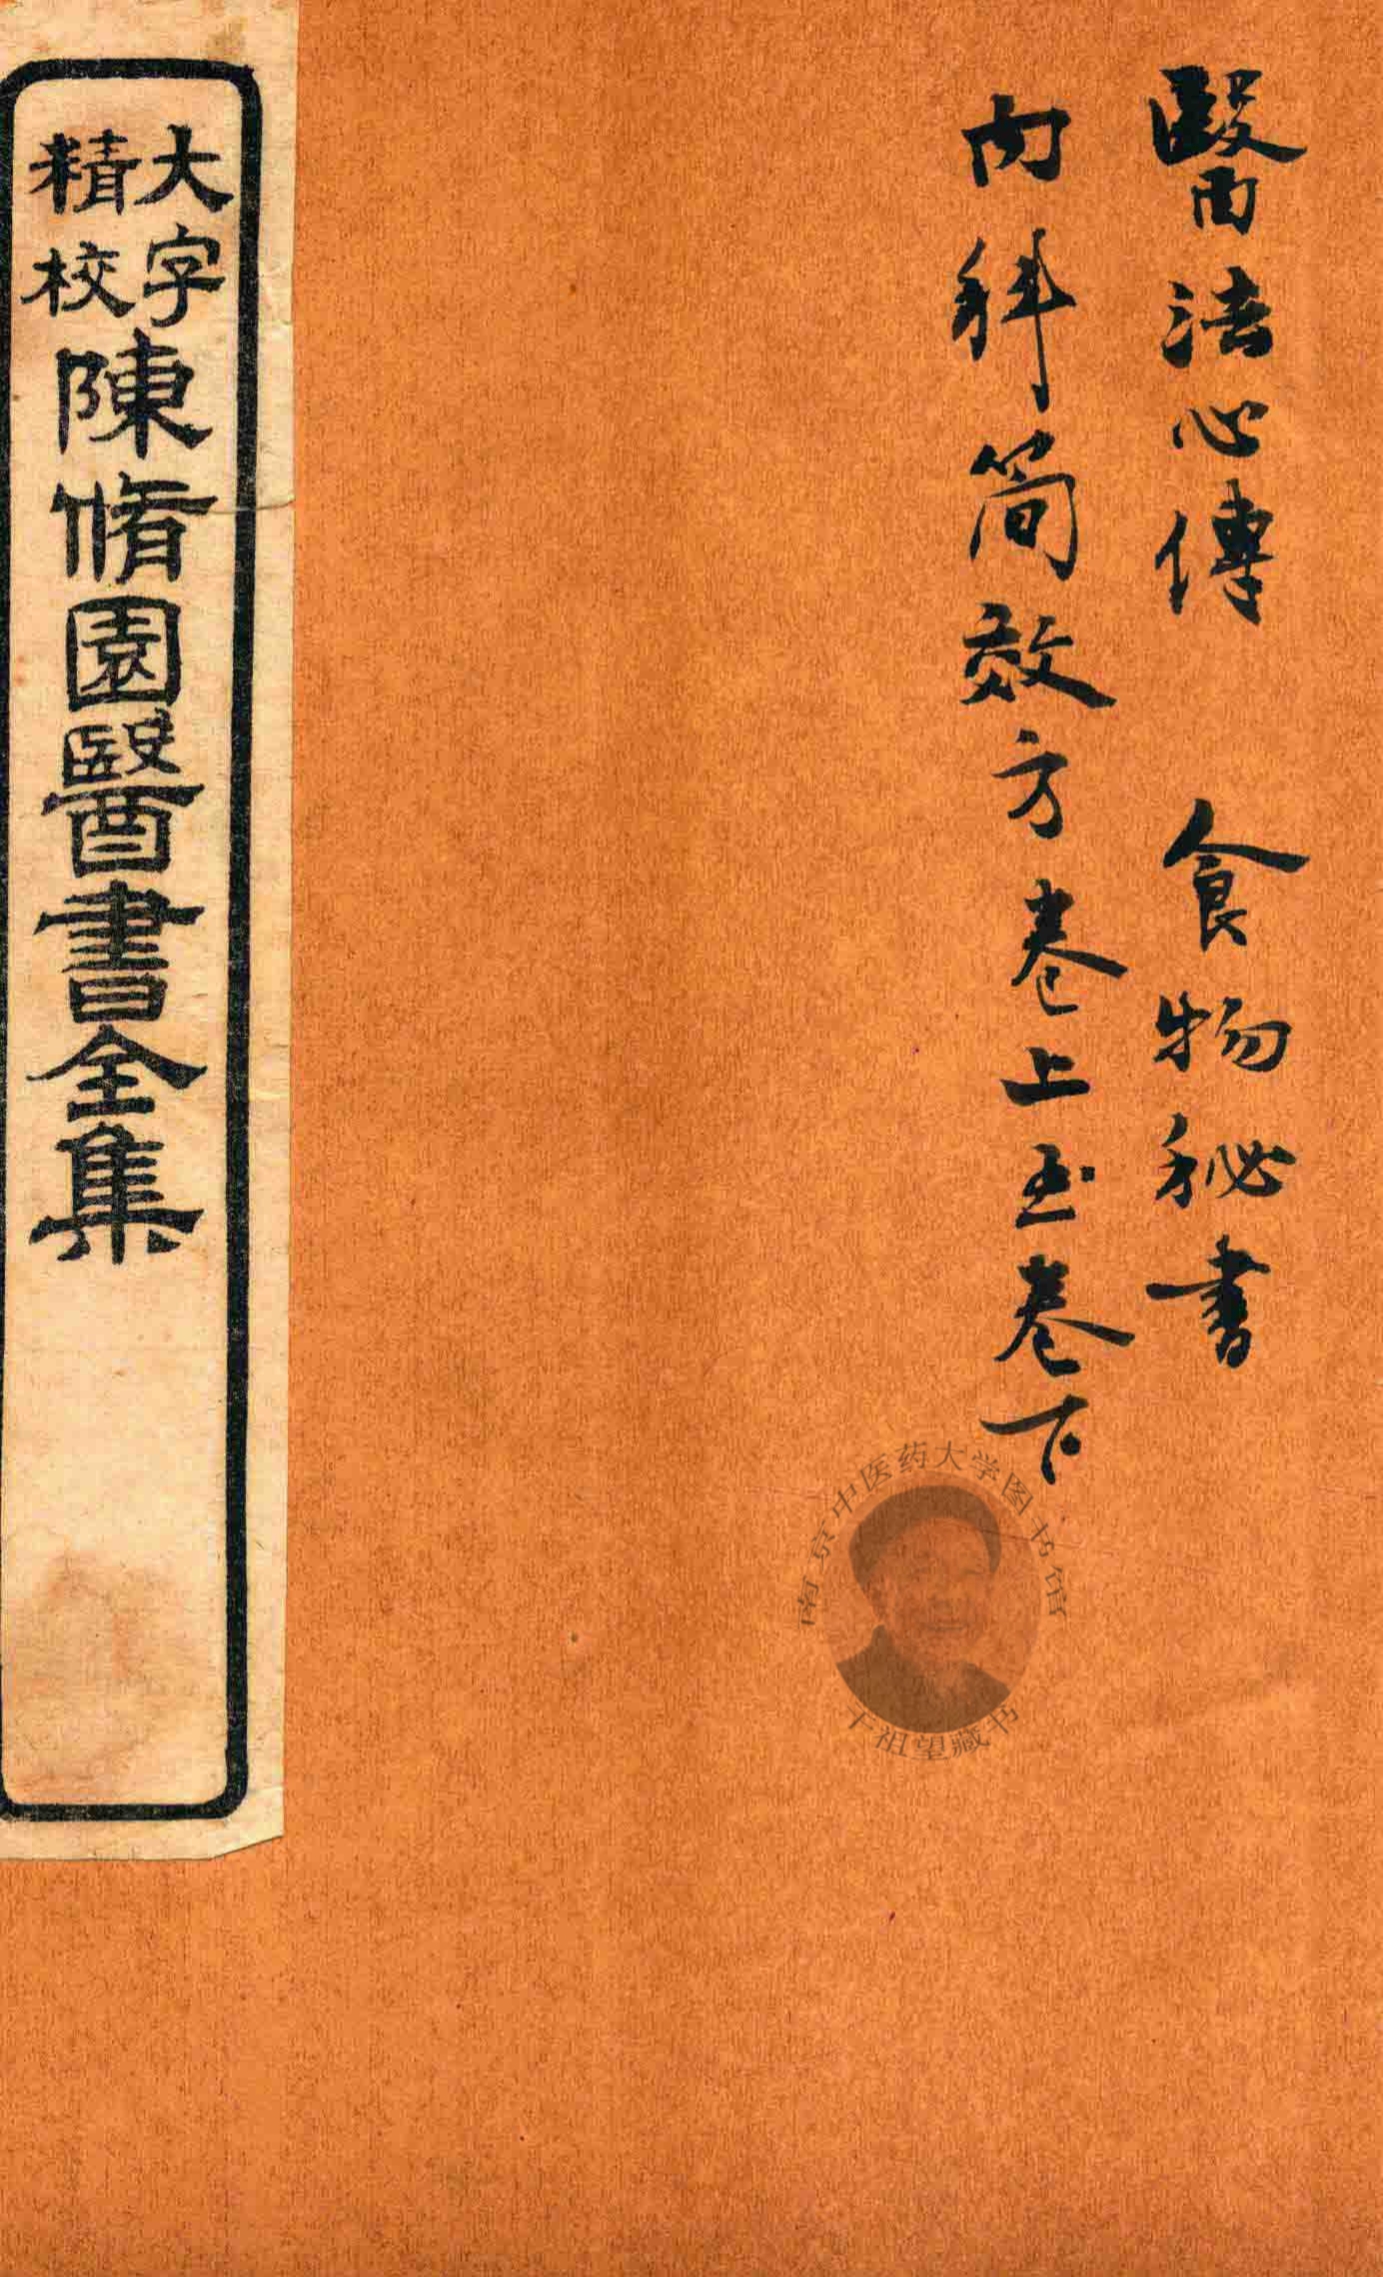 醫法心傳 食物秘書
内科简效方卷上至卷下
大字
精校
陳脩園醫書全集
南京中医药大学图书馆
干祖望藏书